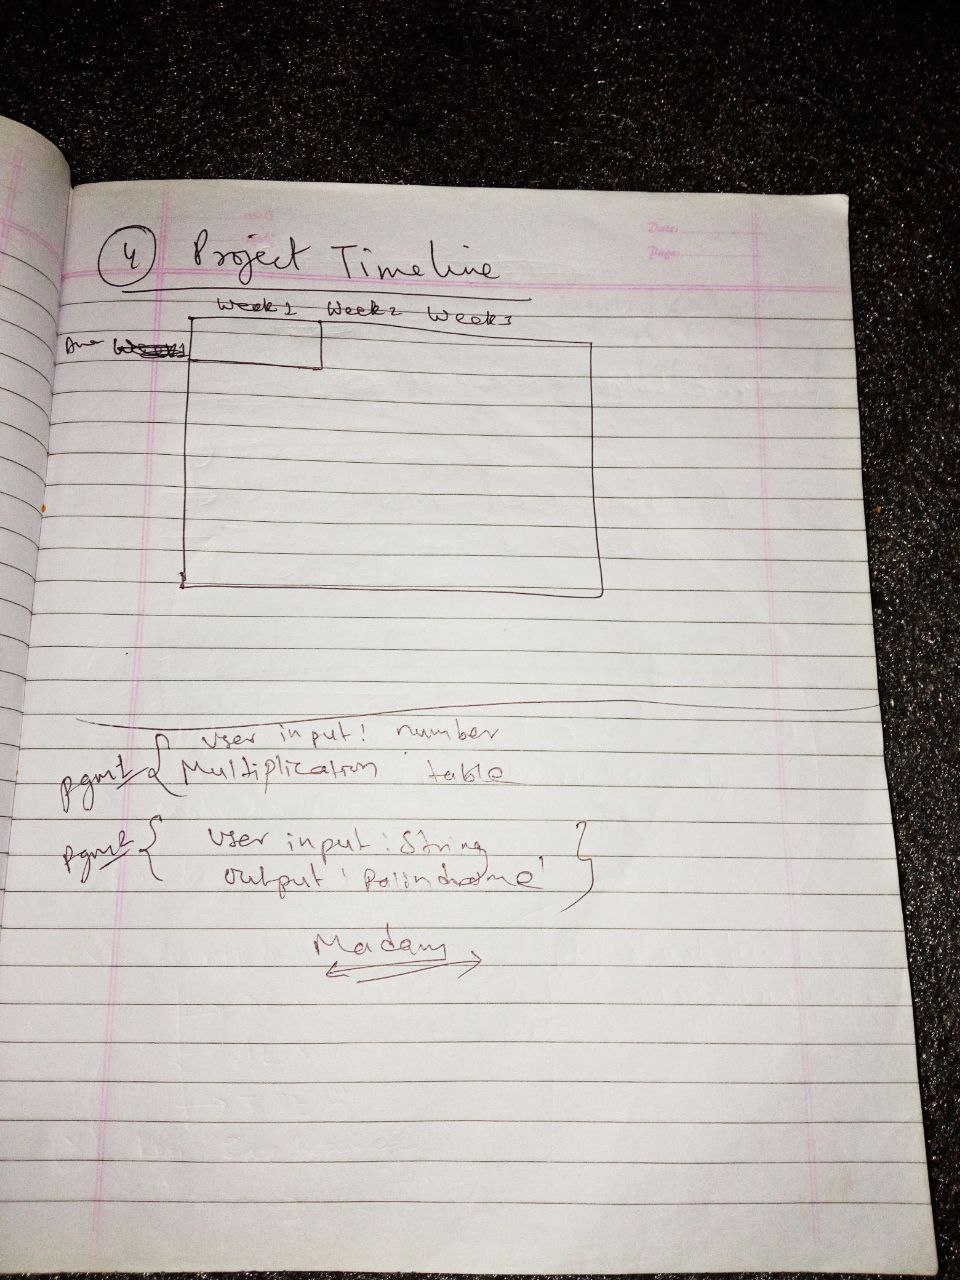 4 Project Timeline
Date:
Page:
Week 1 Week 2 Week 3
pgm1 { user input: number
Multiplication table
pgm2 { user input : String }
output 'Palindrome'
Madam